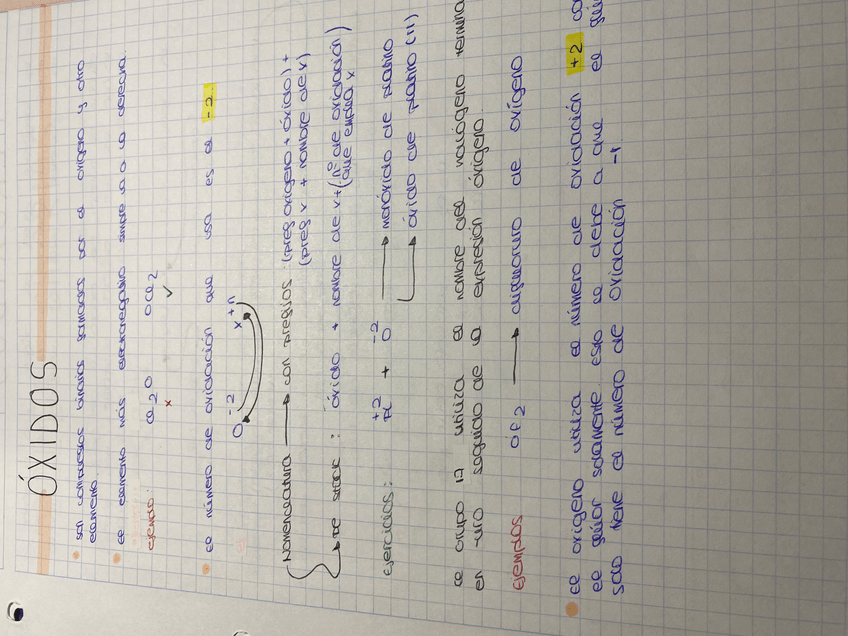 ÓXIDOS
son compuestos binarios formados por el oxígeno y otro
elemento.
el elemento más electronegativo simpre va a la derecha.
ejemplo: Cl2O OCl2
x ✓
el número de oxidación que usa es el -2.
O-2 x+n
Nomenclatura → con prefijos: (pref oxígeno + óxido) +
(pref x + nombre de x)
de stock: óxido + nombre de x + (nº de oxidación)
que emplea x
ejercicios: +2 Pt + O-2 → monóxido de platino
→ óxido de platino (II)
el grupo 17 utiliza el nombre del halógeno termina
en -uro seguido de la expresión óxígeno.
ejemplos OF2 → difluoruro de oxígeno
el oxígeno utiliza el número de oxidación +2 con
el flúor solamente. esto se debe a que el flúor
solo tiene el número de oxidación -1.